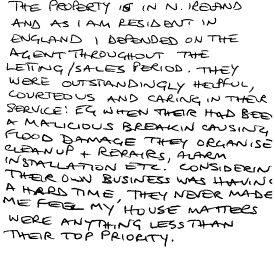 THE PROPERTY IS IN N. IRELAND
AND AS I AM RESIDENT IN
ENGLAND I DEPENDED ON THE
AGENT THROUGHOUT THE
LETTING/SALES PERIOD. THEY
WERE OUTSTANDINGLY HELPFUL,
COURTEOUS AND CARING IN THEIR
SERVICE: EG WHEN THEIR HAD BEE
A MALICIOUS BREAKIN CAUSING
FLOOD DAMAGE THEY ORGANISE
CLEANUP + REPAIRS, ALARM
INSTALLATION ETC. CONSIDERIN
THEIR OWN BUSINESS WAS HAVING
A HARD TIME, THEY NEVER MADE
ME FEEL MY HOUSE MATTERS
WERE ANYTHING LESS THAN
THEIR TOP PRIORITY.